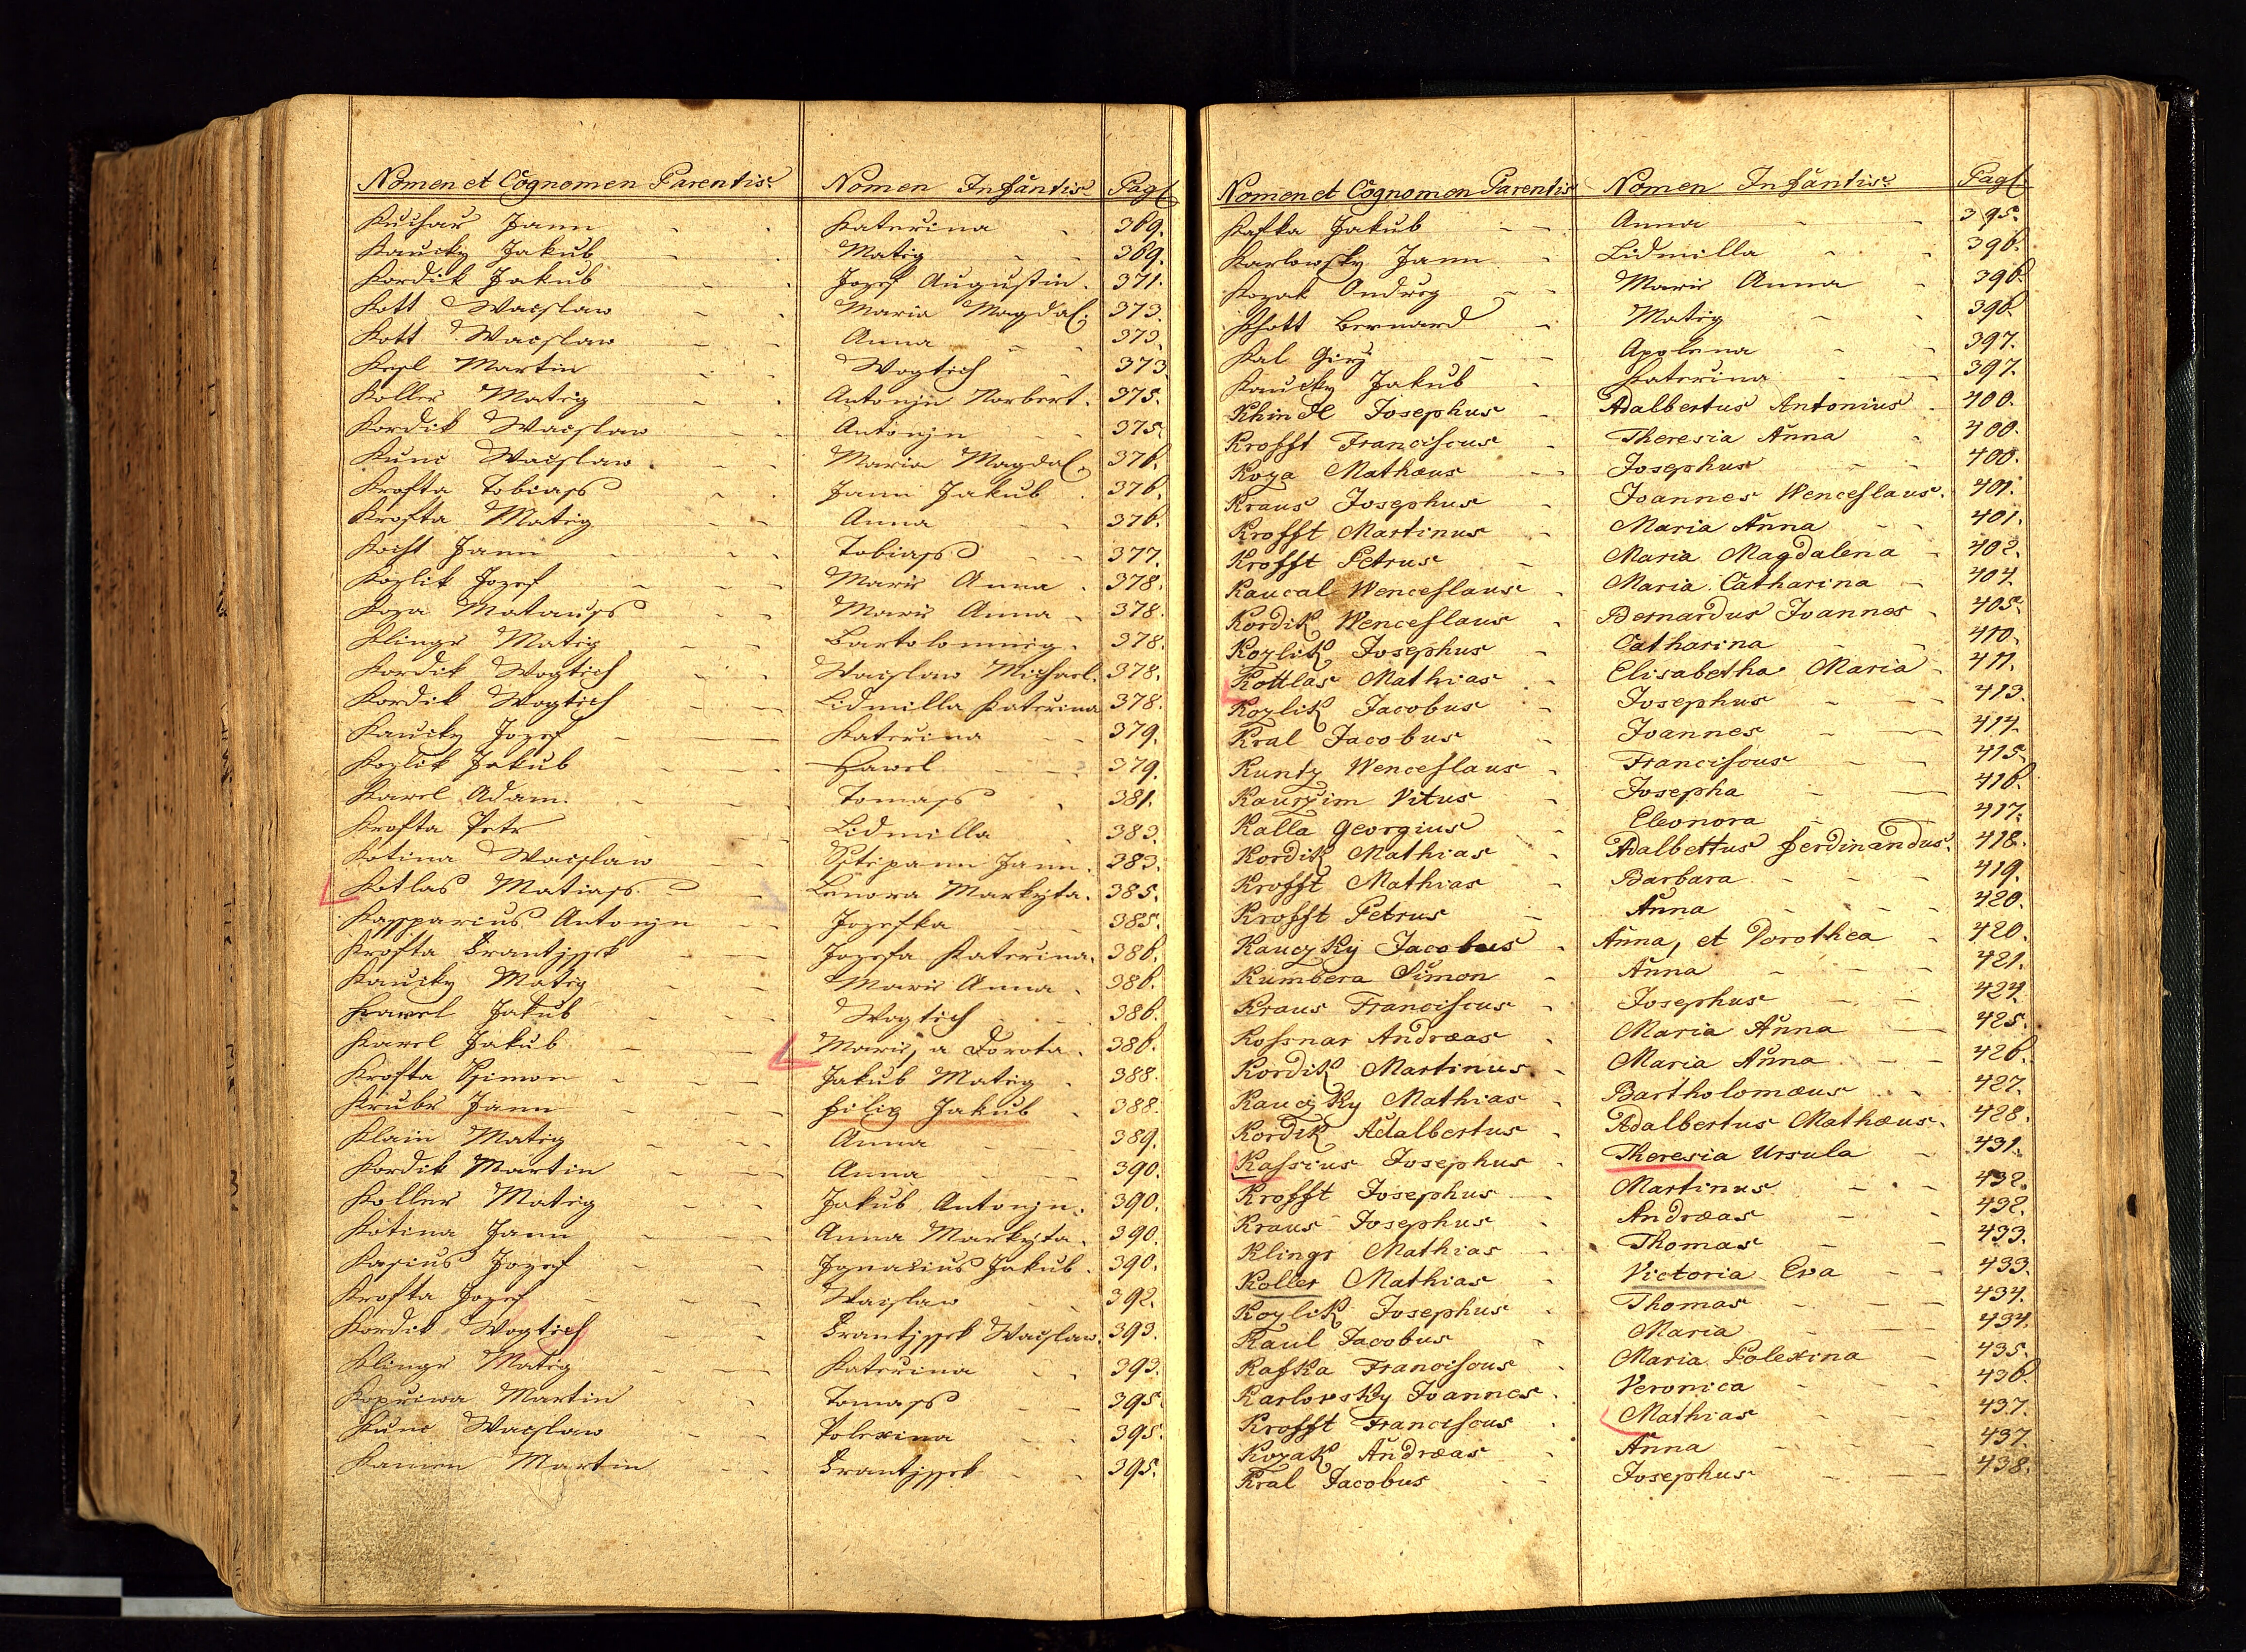 Nomen et Cognomen Parentis. Nomen Infantis Pag.
Kuchar Jann Katerina 369.
Kaucky Jakub Matig 369.
Kordik Jakub Jozef Augustin. 371.
Kott Wacslaw Maria Magdal. 373.
Kott Wacslaw Anna 373.
Kesl Martin Wogtich 373
Koller Matig Antonjn Norbert. 375.
Kordik Wacslaw Antonjn 375.
Kunc Wacslaw Maria Magdal. 376.
Krofta Tobiass Jann Jakub 376.
Krofta Matig Anna 376.
Jann Tobiass 377.
Kozlik Jozef Marie Anna 378.
Koza Matauss Marie Anna 378.
Klinge Matig Bartolomneig. 378.
Kordik Wogtich Wacslaw Michael. 378.
Kordik Wogtich Lidmilla Katerina 378.
Kaucky Jozef Katerina 379.
Kozlik Jakub Hawel 379.
Karel Adam. Tomass 381.
Krofta Petr Lidmilla 383.
Kotina Wacslaw Sstepann Jann. 383.
Kotlas Matiass Lenora Markyta. 385.
Kassparius Antonjn Jozefka 385.
Krofta Frantjssek Jozefa Katerina. 386.
Kaucky Matig Marie Anna 386.
Karel Jakub Wogtich 386.
Karel Jakub Marie, a Dorota. 386.
Krofta Ssimon Jakub Matig 388.
Krube Jann Filip Jakub 388.
Klain Matig Anna 389.
Kordik Martin Anna 390.
Koller Matig Jakub Antonjn. 390.
Kotina Jann Anna Markyta. 390.
Kasius Jozef Ignacius Jakub. 390.
Krofta Jozef Wacslaw 392.
Kordik Wogtich Frantjssek Wacslaw. 393.
Klinge Matig Katerina 393.
Kopriwa Martin Tomass 395
Kunc Wacslaw Polexina 395.
Kamen Martin Frantjssek 395.
Nomen et Cognomen Parentis Nomen Infantis. Pag.
Kafka Jakub Anna 395.
Karlowsky Jann Lidmilla 396.
Kozak Ondreg Marie Anna 396.
Khott Bernard Matig 396.
Kal Girj Apolena 397.
Kaucky Jakub Katerina 397.
Khindl Josephus Adalbertus Antonius 400.
Krofft Franciscus Theresia Anna 400.
Koza Mathæus Josephus 400.
Kraus Josephus Joannes Wenceslaus. 401.
Krofft Martinus Maria Anna 401.
Krofft Petrus Maria Magdalena 402.
Kaucal Wenceslaus Maria Catharina 404.
Kordik Wenceslaus Bernardus Joannes 405.
Kozlik Josephus Catharina 410.
Kottlas Mathias Elisabetha Maria 411.
Kozlik Jacobus Josephus 413.
Kral Jacobus Joannes 414.
Kuntz Wenceslaus Franciscus 415.
Kaurzim Vitus Josepha 416.
Kalla Georgius Eleonora 417.
Kordik Mathias Adalbettus Ferdinandus. 418.
Krofft Mathias Barbara 419.
Krofft Petrus Anna 420.
Kauczky Jacobus Anna, et Dorothea 420.
Kumbera Simon Anna 421.
Kraus Franciscus Josephus 424.
Kossnar Andræas Maria Anna 425.
Kordik Martinus Maria Anna 426.
Kauczky Mathias Bartholomæus 427.
Kordik Adalbertus Adalbertus Mathæus. 428.
Kassius Josephus Theresia Ursula 431.
Krofft Josephus Martinus 432.
Kraus Josephus Andræas 432.
Klingr Mathias Thomas 433.
Koller Mathias Victoria Eva 433.
Kozlik Josephus Thomas 434.
Kaul Jacobus Maria 434.
Kafka Franciscus Maria Polexina 435.
Karlovsky Joannes. Veronica 436.
Krofft Franciscus Mathias 437.
Kozak Andræas Anna 437.
Kral Jacobus Josephus 438.